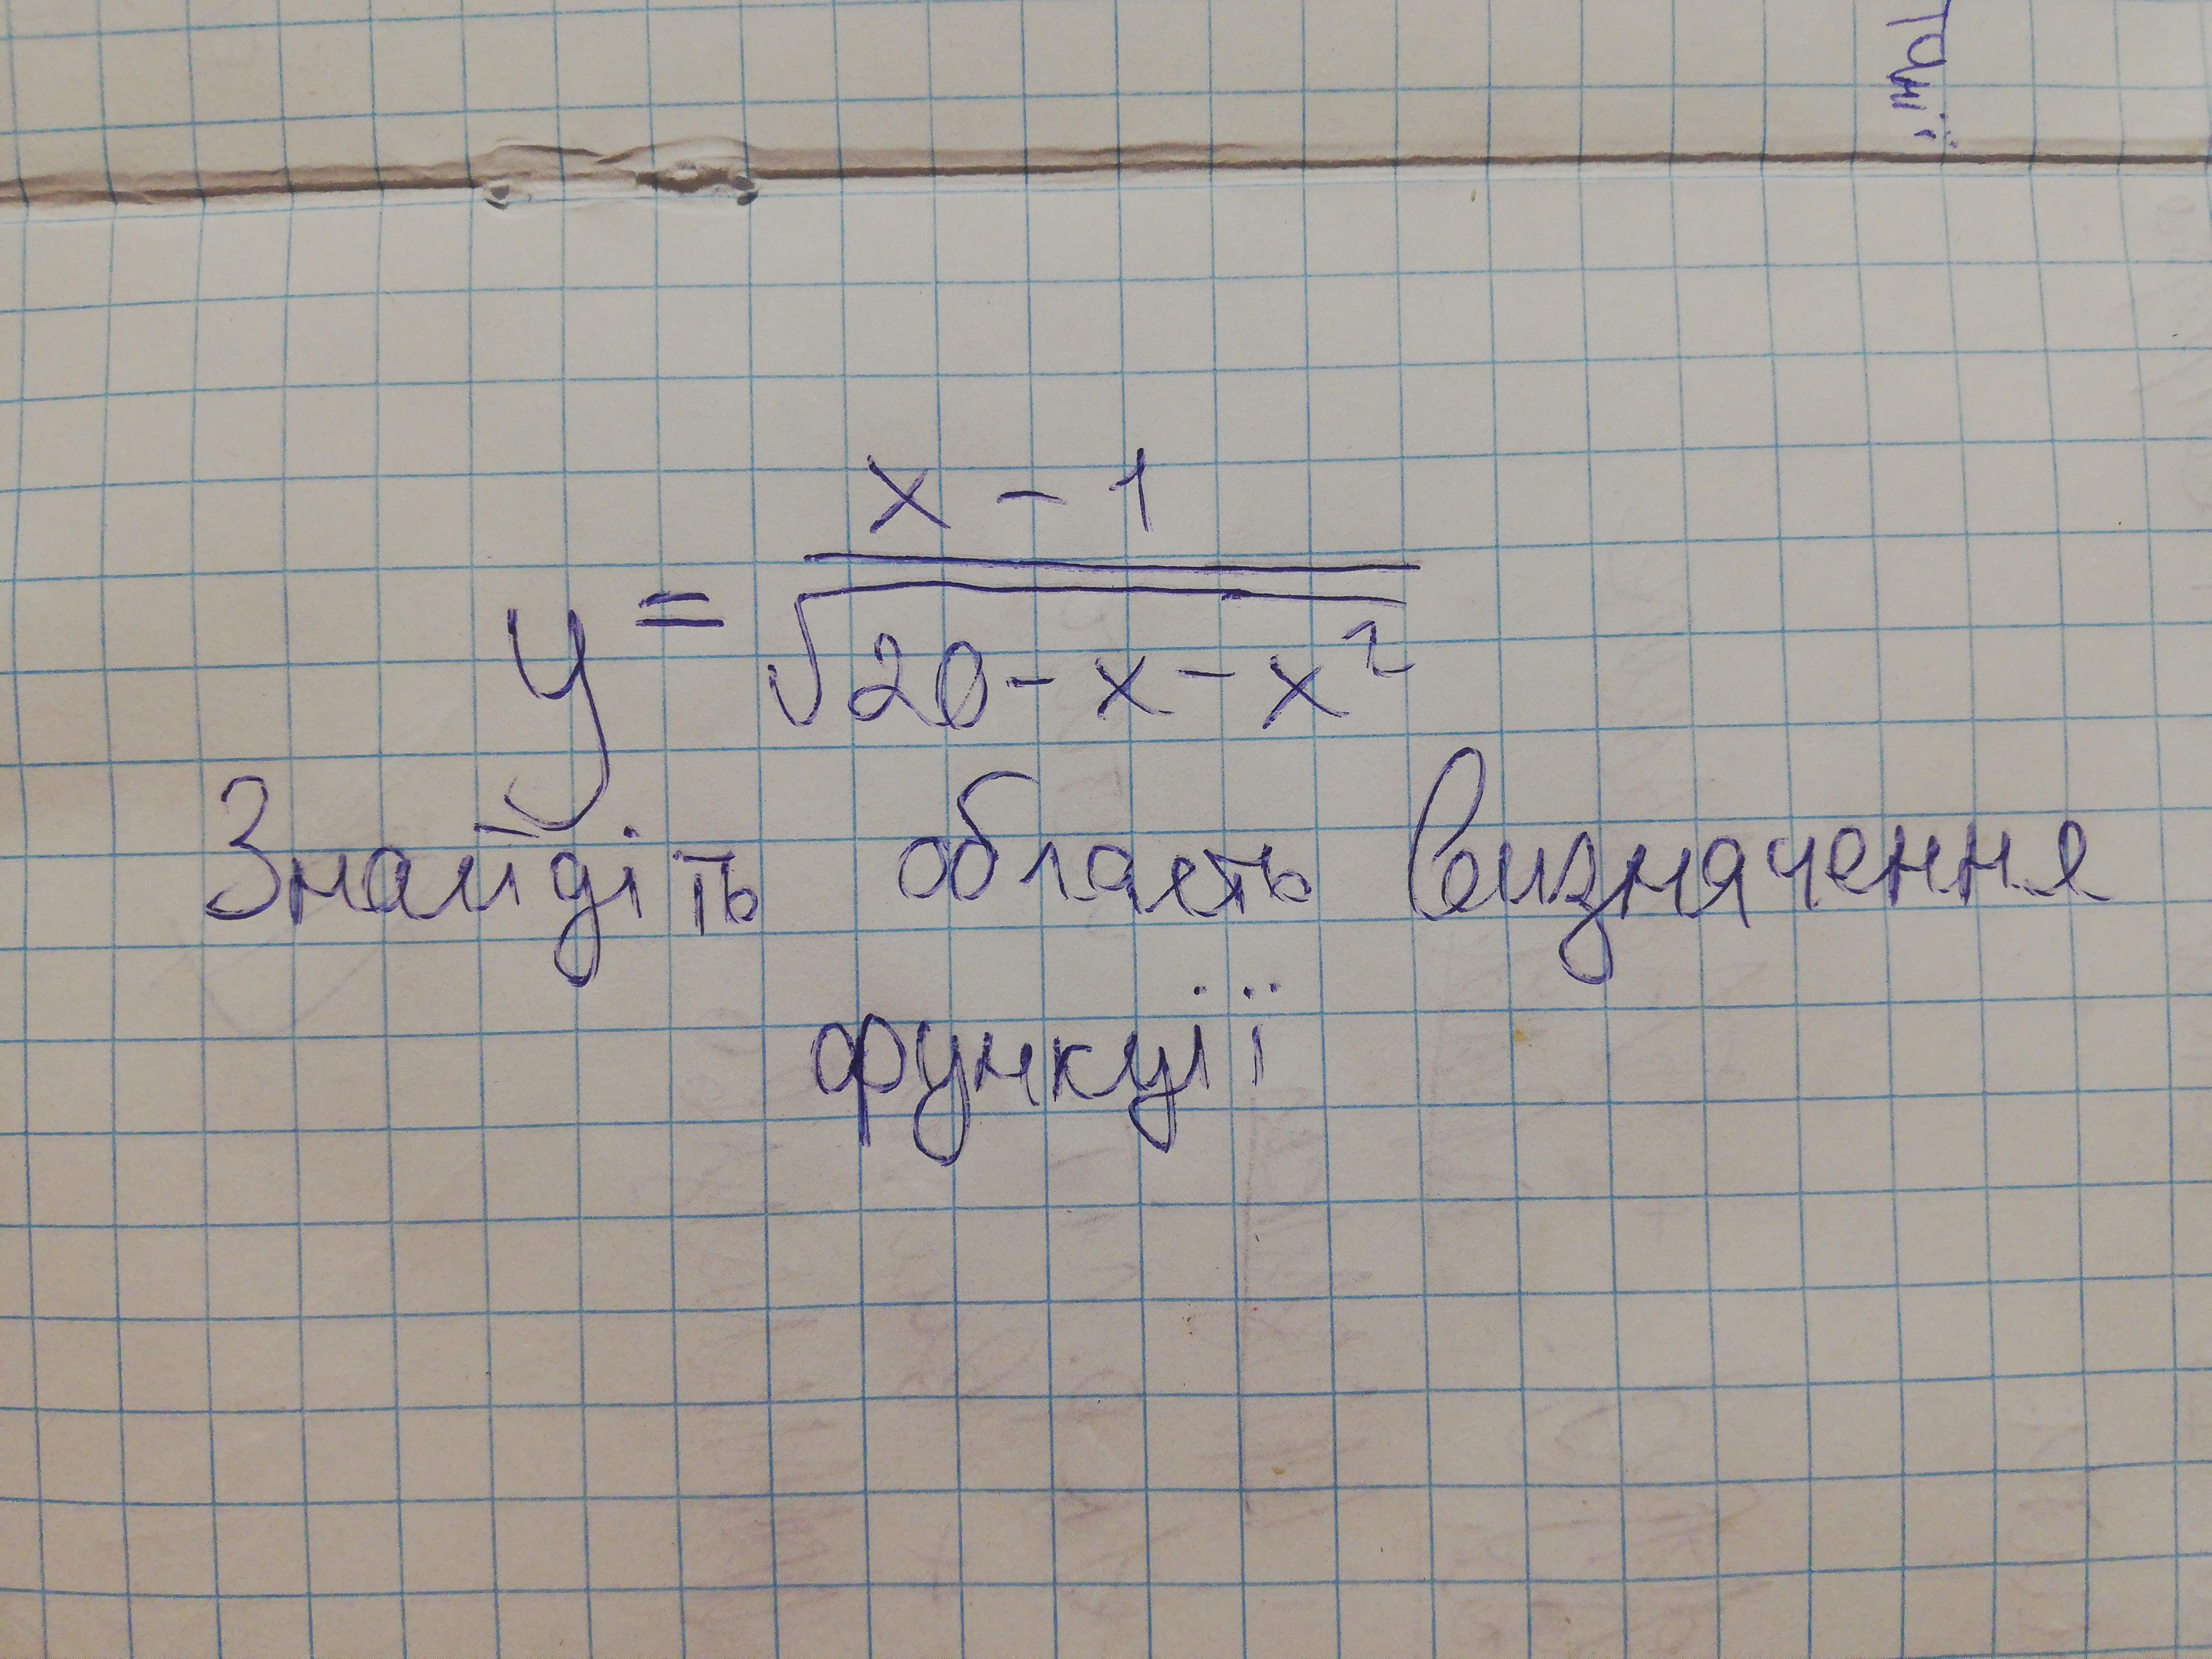 y = \frac{x - 1}{\sqrt{20 - x - x^2}}
Знайдіть область визначення
функції